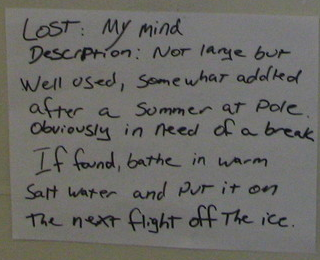 LOST: My mind
Description: Not large but
well used, somewhat addled
after a summer at Pole.
Obviously in need of a break
If found, bathe in warm
salt water and put it on
the next flight off the ice.